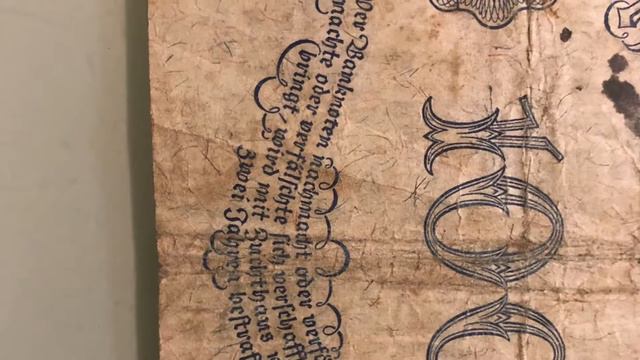 Wer Banknoten nachmacht oder verf
machte oder verfälschte sich verschaff
bringt, wird mit Zuchthaus
Zwei Jahren bestraf
100